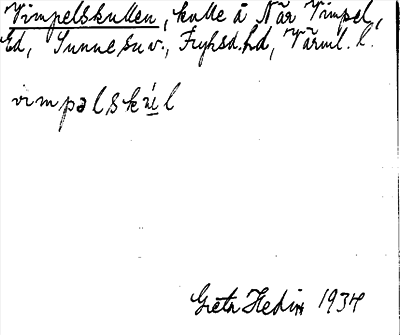 Vimpelskullen, kulle å Når Vimpel,
Ed, Sunne sn v., Fryksd. hd, Värml. l.
vimpəlskúl
Greta Hedin 1934